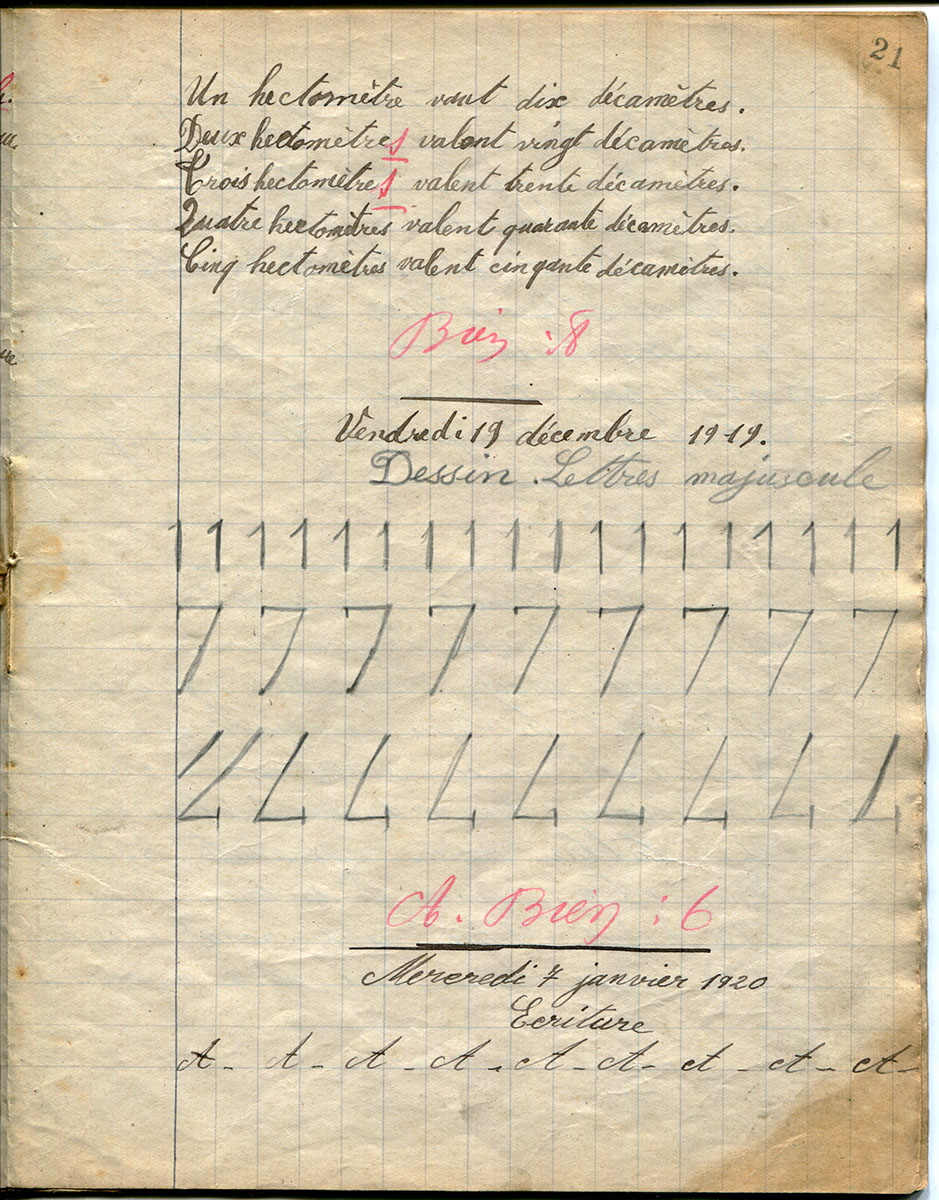 21
Un hectomètre vaut dix décamètres.
Deux hectomètres valent vingt décamètres.
Trois hectomètres valent trente décamètres.
Quatre hectomètres valent quarante décamètres.
Cinq hectomètres valent cinqante décamètres.
Bien : 8
Vendredi 19 décembre 1919.
Dessin. Lettres majuscule
1 1 1 1 1 1 1 1 1 1 1 1 1 1 1 1 1 1
7 7 7 7 7 7 7 7 7
4 4 4 4 4 4 4 4 4
A. Bien : 6
Mercredi 7 janvier 1920
Ecriture
A - A - A - A - A - A - A - A - A -